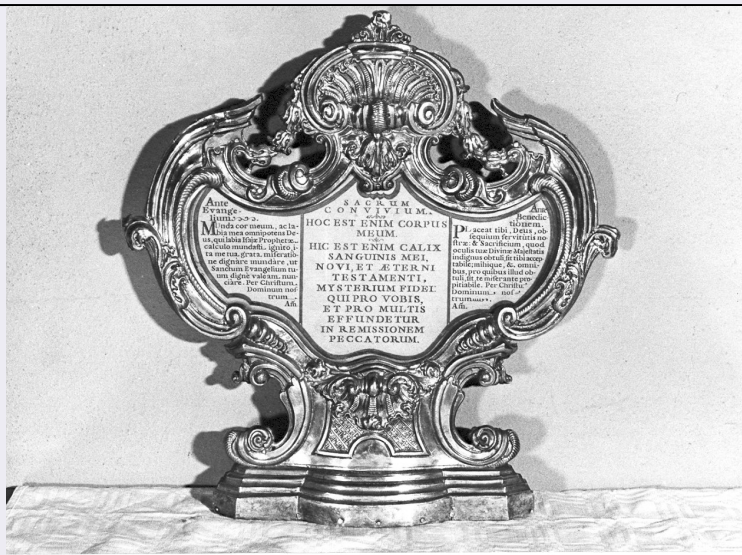 Ante
Evange-
lium.
MUnda cor meum, ac la-
bia mea omnipotens De-
us, qui labia Isaiæ Prophetæ
calculo mundasti ignito, i-
ta me tua grata miseratio-
ne dignare mundare, ut
Sanctum Evangelium tu-
um dignè valeam nun-
ciare. Per Christum
Dominum nos-
trum
Am.
SACRUM
CONVIVIUM.
HOC EST ENIM CORPUS
MEUM.
HIC EST ENIM CALIX
SANGUINIS MEI,
NOVI, ET ÆTERNI
TESTAMENTI,
MYSTERIUM FIDEI
QUI PRO VOBIS,
ET PRO MULTIS
EFFUNDETUR
IN REMISSIONEM
PECCATORUM.
Ante
Benedic
tionem.
PLaceat tibi, Deus, ob-
sequium servitutis no
stræ: & Sacrificium, quod
oculis tuæ Divinæ Majestatis
indignus obtuli, sit tibi accep-
tabile; mihique, &, omni-
bus, pro quibus illud ob-
tuli, sit, te miserante pro-
pitiabile. Per Christu
Dominum nos-
trum
Am.